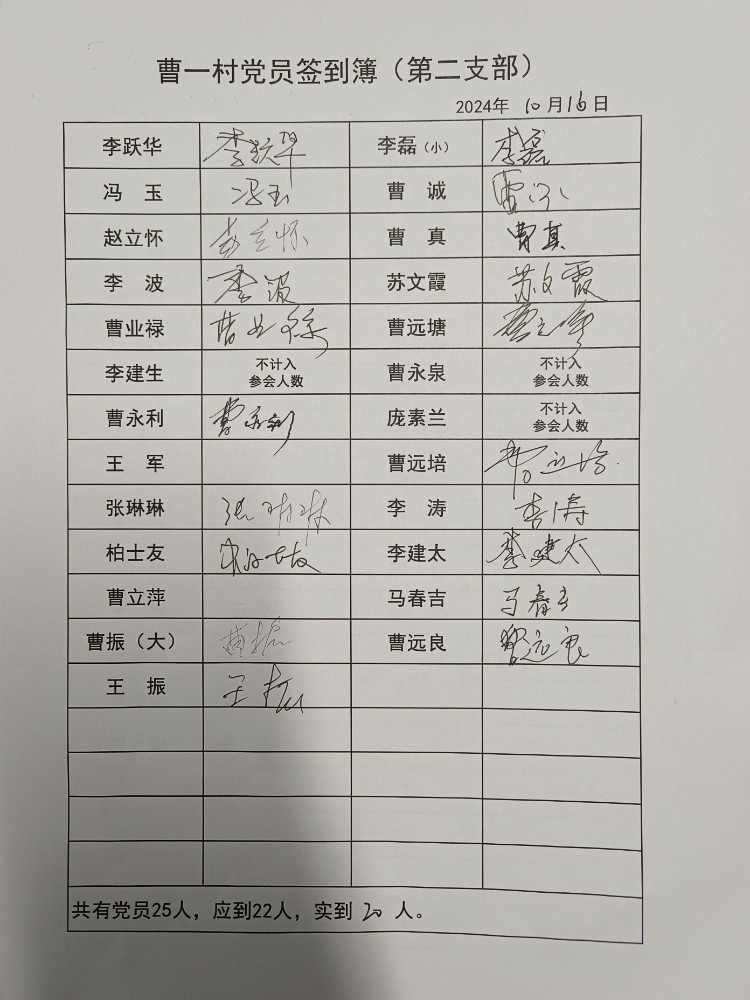 曹一村党员签到簿（第二支部）
2024年 10月16日
李跃华 李跃华 李磊（小） 李磊
冯 玉 冯玉 曹 诚 曹诚
赵立怀 赵立怀 曹 真 曹真
李 波 李波 苏文霞 苏文霞
曹业禄 曹业禄 曹远塘
李建生 不计入 曹永泉 不计入
参会人数 参会人数
曹永利 曹永利 庞素兰 不计入
参会人数
王 军 曹远培 曹远培
张琳琳 张琳琳 李 涛 李涛
柏士友 柏士友 李建太 李建太
曹立萍 马春吉 马春吉
曹振（大） 曹振 曹远良 曹远良
王 振 王振
共有党员25人，应到22人，实到 20 人。